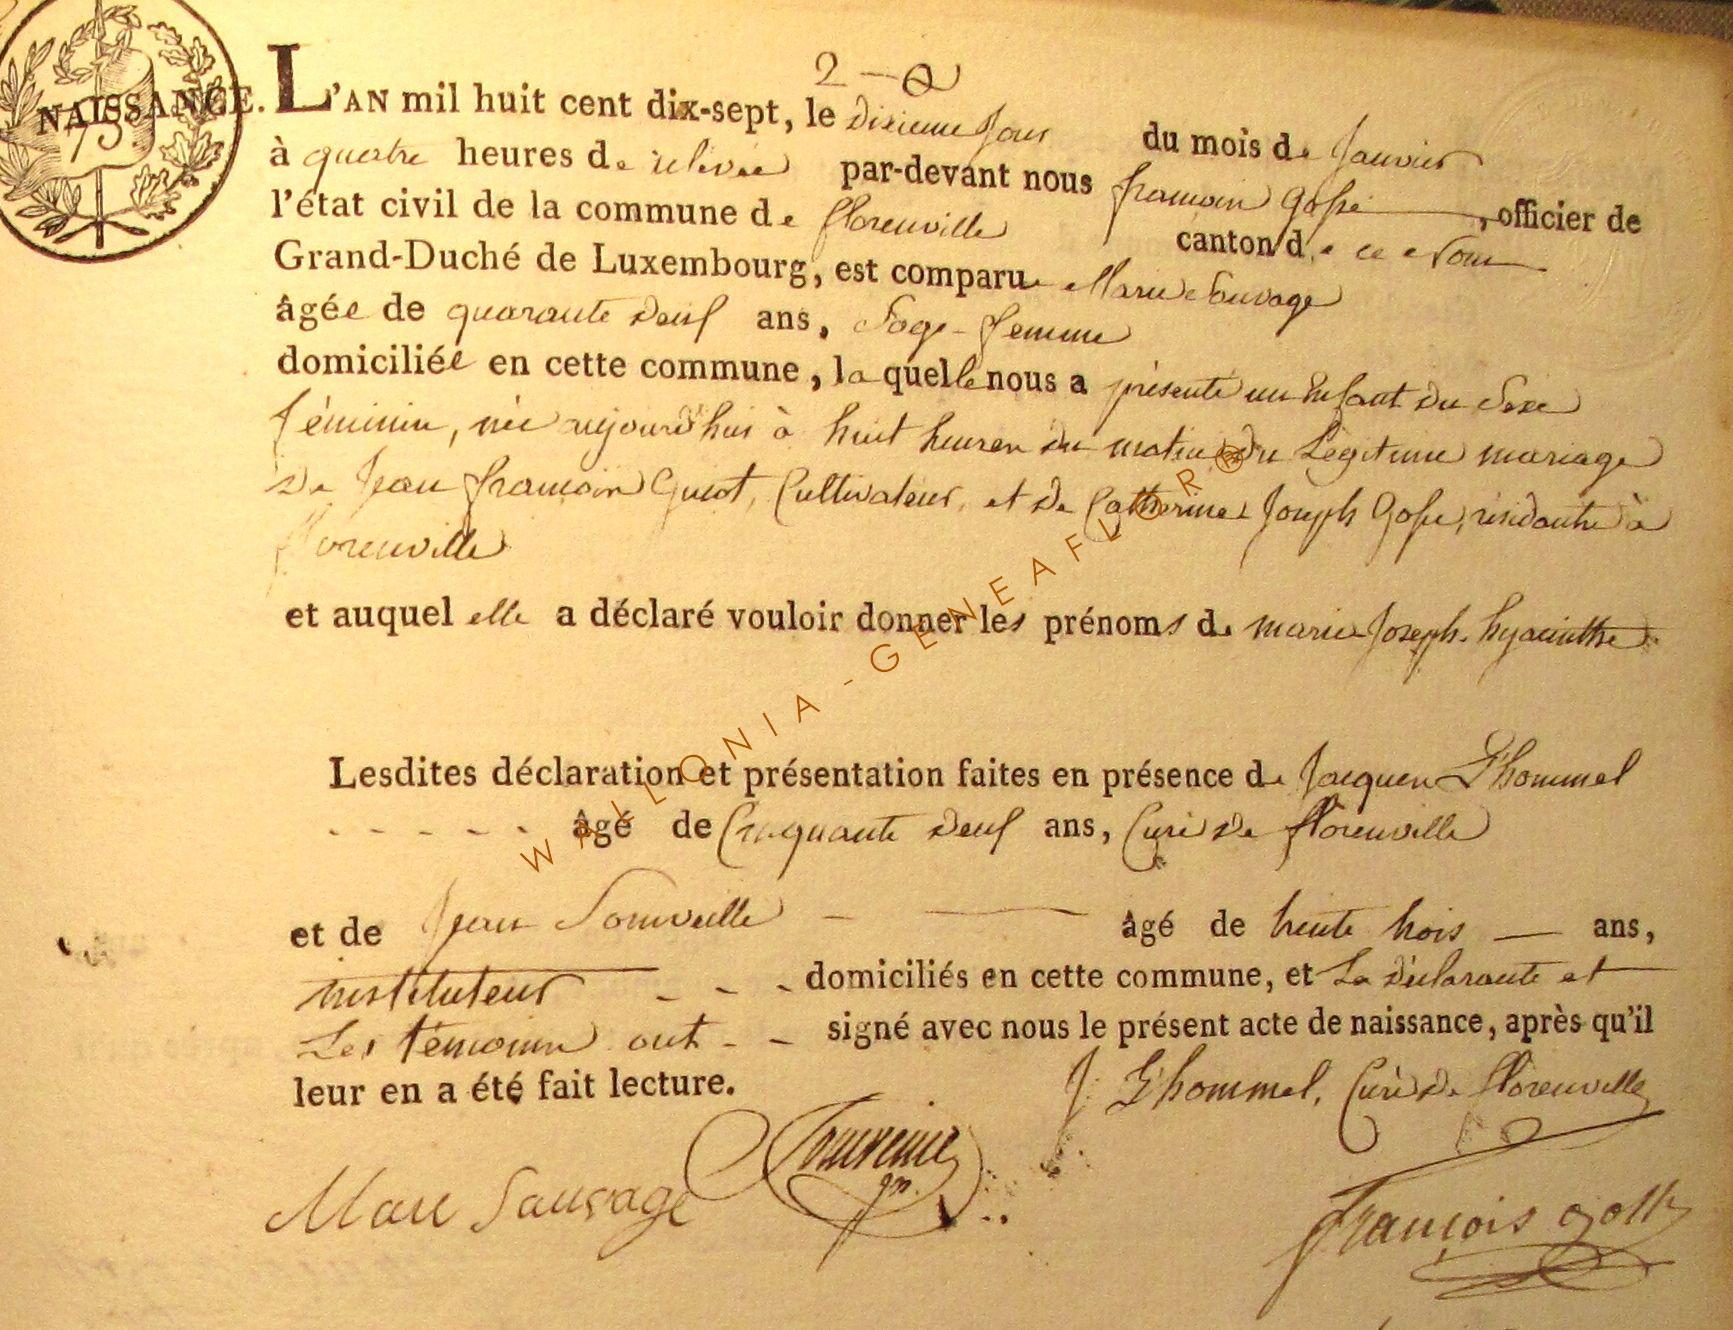 2
NAISSANCE. L'AN mil huit cent dix-sept, le dixieme Jour du mois de Janvier
à quatre heures de relevée par-devant nous francois Gosse, officier de
l'état civil de la commune de florenville canton de ce Nom
Grand-Duché de Luxembourg, est comparue Marie Sauvage
âgée de quarante Deuf ans, Sage-femme
domiciliée en cette commune, la quelle nous a présenté un Enfant du Sexe
féminin, née aujourd'hui à huit heures du matin du Légitime mariage
De Jean francois Guiot, Cultivateur, et de Catherine Joseph Gosse, résidante à
florenville
et auquel elle a déclaré vouloir donner les prénoms de marie Joseph hyacinthe
Lesdites déclaration et présentation faites en présence de Jacques L'hommel
âgé de Cinquante Deuf ans, Curé de florenville
et de Jean Somveille âgé de trente trois ans,
instituteur domiciliés en cette commune, et La déclarante et
Les témoins ont signé avec nous le présent acte de naissance, après qu'il
leur en a été fait lecture.
J: L'hommel, Curé de florenville
Marie Sauvage
François Gosse
WALLONIA-GENEAFLOR®